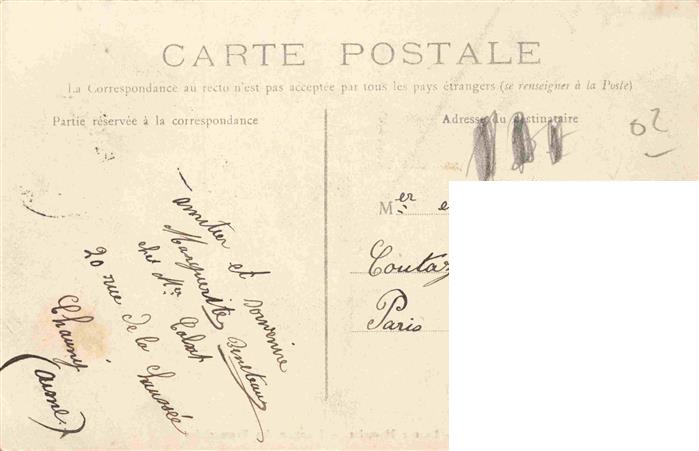 CARTE POSTALE
La Correspondance au recto n'est pas acceptée par tous les pays étrangers (se renseigner à la Poste)
Partie réservée à la correspondance
Adresse du destinataire
02
amitier et souvenire
Marguerite
chez Mr
20 rue de la Chaussée
Chauny
(Aisne)
Mer e
Coutaz
Paris